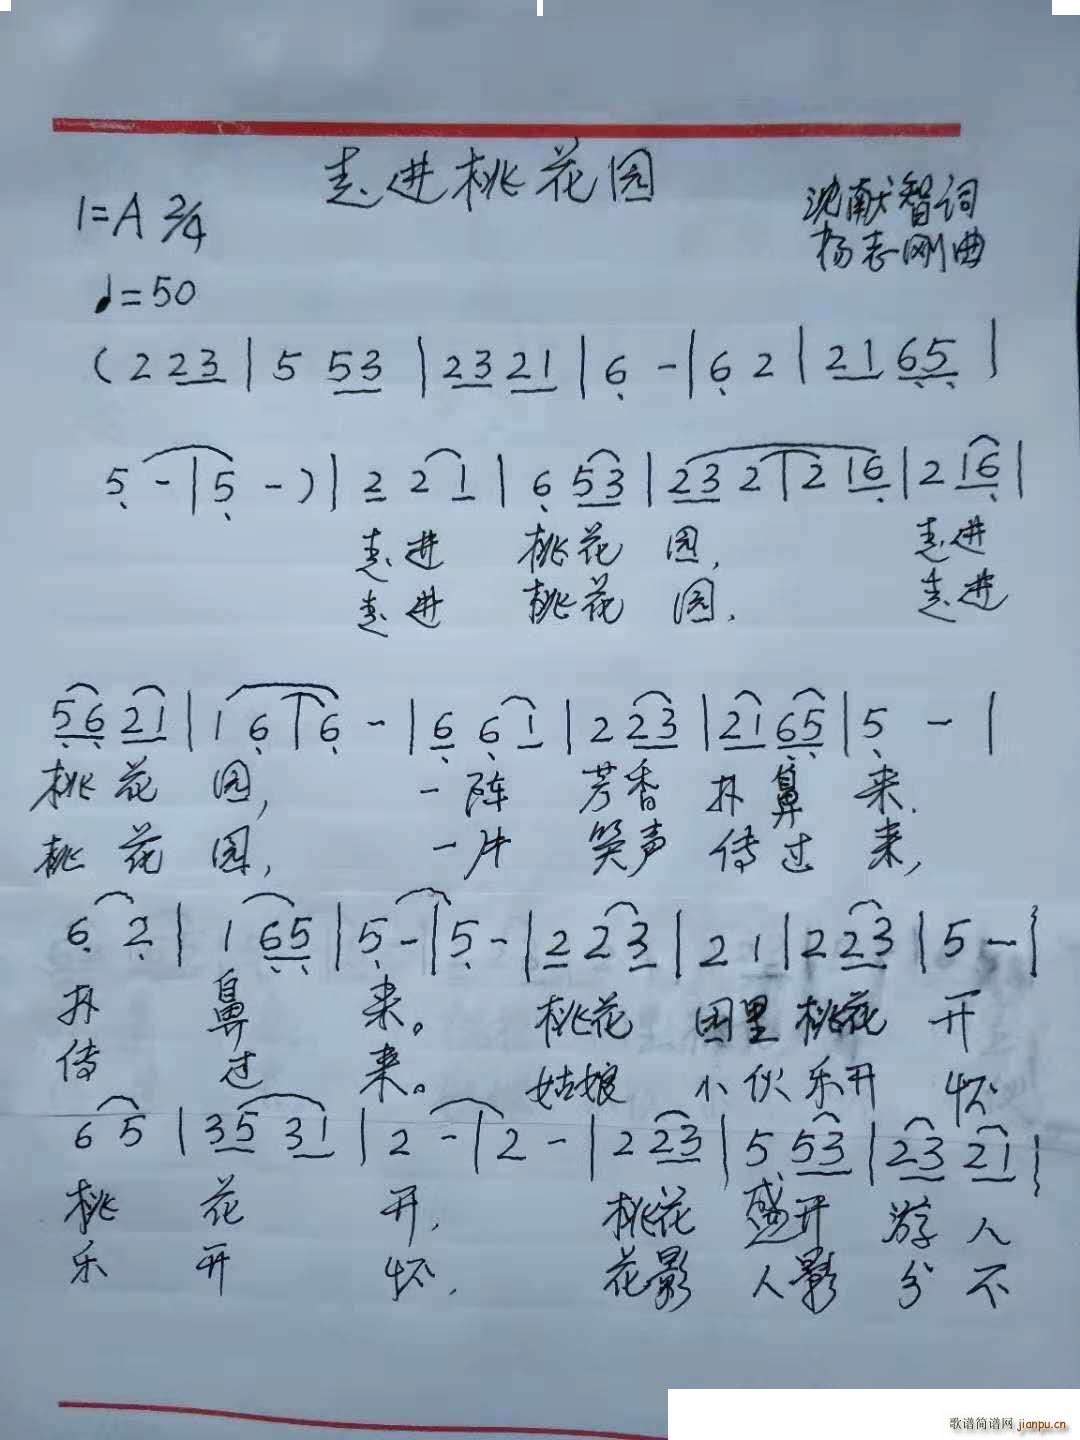 走进桃花园
1=A 2/4
沈献智词
杨志刚曲
♩=50
(2 2 3 | 5 5 3 | 2 3 2 1 | 6 - | 6 2 | 2 1 6 5 |
5 - | 5 - ) | 2 2 1 | 6 5 3 | 2 3 2 | 2 1 6 | 2 1 6 |
走进 桃花 园, 走进
走进 桃花 园, 走进
5 6 2 1 | 1 6 | 6 - | 6 6 1 | 2 2 3 | 2 1 6 5 | 5 - |
桃花 园, 一阵 芳香 扑鼻 来.
桃花 园, 一片 笑声 传过 来,
6 2 | 1 6 5 | 5 - | 5 - | 2 2 3 | 2 1 | 2 2 3 | 5 - |
扑 鼻 来。 桃花 园里 桃花 开
传 过 来。 姑娘 小伙 乐开 怀
6 5 | 3 5 3 1 | 2 - | 2 - | 2 2 3 | 5 5 3 | 2 3 2 1 |
桃 花 开, 桃花 盛开 游人
乐 开 怀, 花影 人影 分不
歌谱简谱网 jianpu.cn